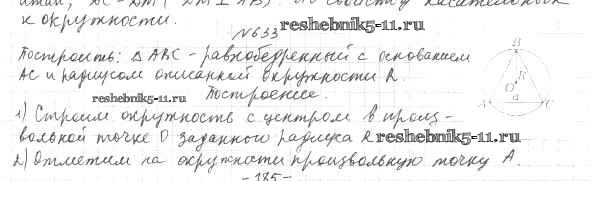 к окружности.
№ 633
reshebnik5-11.ru
Построить: △ ABC - равнобедренный с основанием
AC и радиусом описанной окружности R.
reshebnik5-11.ru
Построение.
1) Строим окружность с центром в произ-
вольной точке O заданного радиуса R
reshebnik5-11.ru
2) Отметим на окружности произвольную точку A.
- 185 -
B
R
O
a
A
C